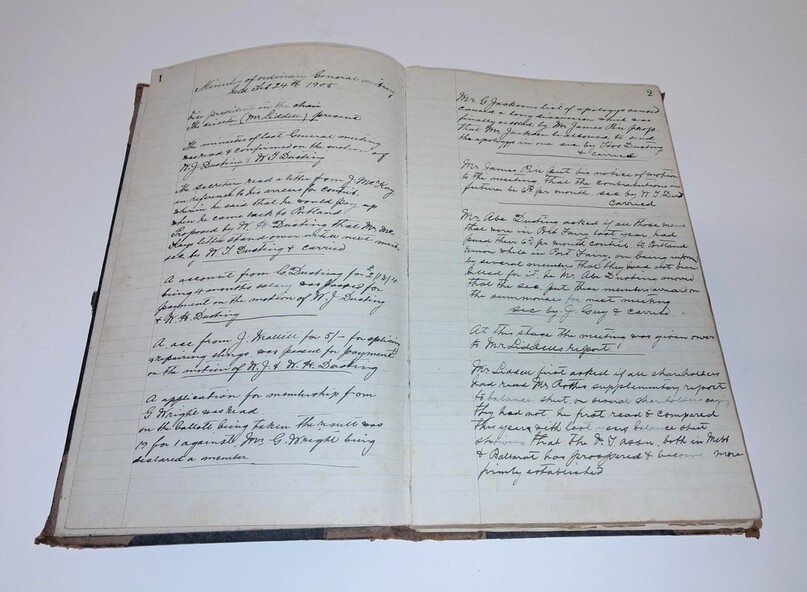 1
Minutes of ordinary General meeting
held Feb 24th 1905
Vice president in the chair
The director (Mr Liddell) present
The minutes of last General meeting
was read & confirmed on the motion of
W. J. Dusting & W. T. Dusting
The secretary read a letter from J. McKay
in reference to his arrears for contrib.
wherein he said that he would pay up
when he came back to Portland
Proposed by W. H. Dusting that Mr Mc
Kays letter stand over until next meet
sec by W T Dusting & carried
A account from G Dusting for
being 4 months salary was passed for
payment on the motion of W. J. Dusting
& W. H. Dusting
A acc from J. for 5/- for
& repairing was passed for payment
on the motion of W. J. & W. H. Dusting
A application for membership from
G Wright was read
on the ballots being taken the result was
19 for 1 against. Mr G. Wright being
declared a member
2
Mr G. Jacksons list of apologys caused
a long discussion which was
finally ended by Mr James
that Mr Jackson be allowed to send
the apologys in one sec by Dusting
& carried
Mr James put his notice of motion
to the meeting that the contributions in
future be 6d per month sec by W. T. Dust
carried
Mr Abe Dusting asked if all those men
that were in Port Fairy last year had
paid their 6d per month contrib. to Portland
Union while in Port Fairy, on being
by several members that they had not been
billed for it, he Mr Abe Dusting moved
that the sec. put those members on
the for next meeting
sec by J. Guy & carried
At this stage the meeting was given over
to Mr Liddells report
Mr Liddell first asked if all shareholders
had read Mr supplimentary report
to balance sheet, on shareholders saying
they had not he first read & compared
this years with last years balance sheet
showing that the assn. both in Melb
& Ballarat has prospered & become more
firmly established